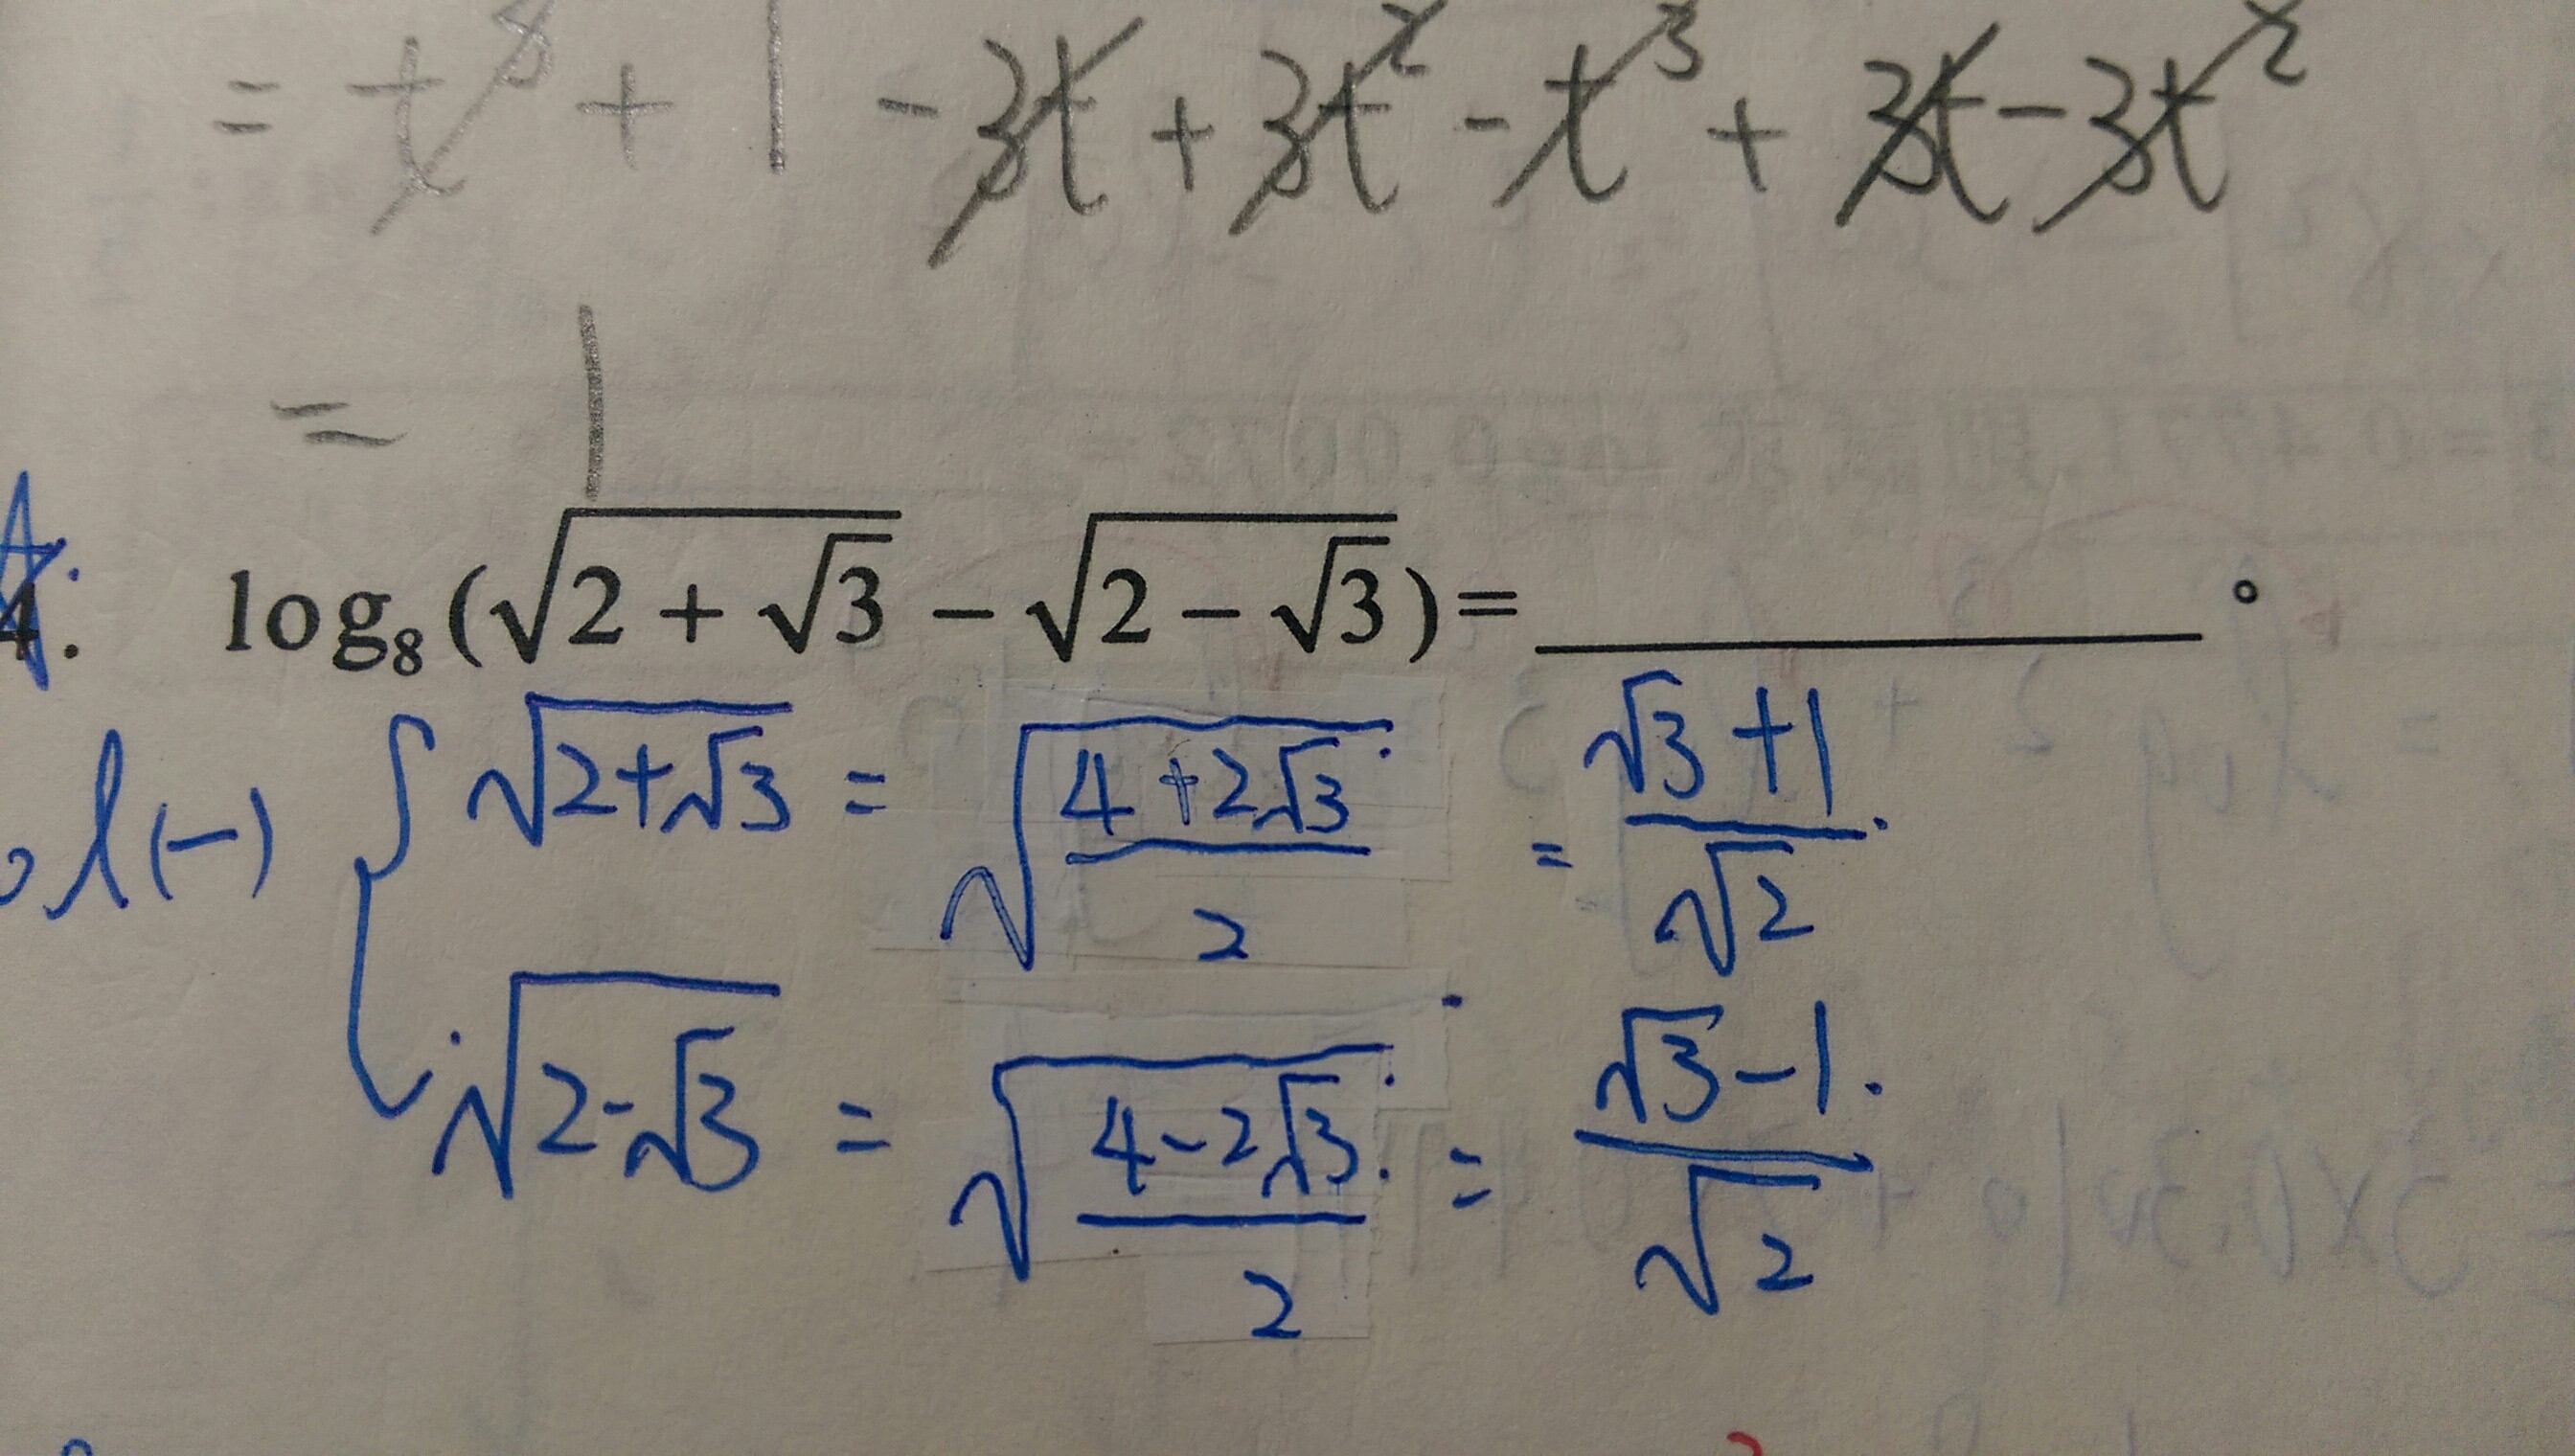 = t³ + 1 - 3t + 3t² - t³ + 3t - 3t²
= 1
4. log₈(√(2 + √3) - √(2 - √3)) = ________ 。
sol(一) { √(2+√3) = √((4+2√3)/2) = (√3+1)/√2
√(2-√3) = √((4-2√3)/2) = (√3-1)/√2